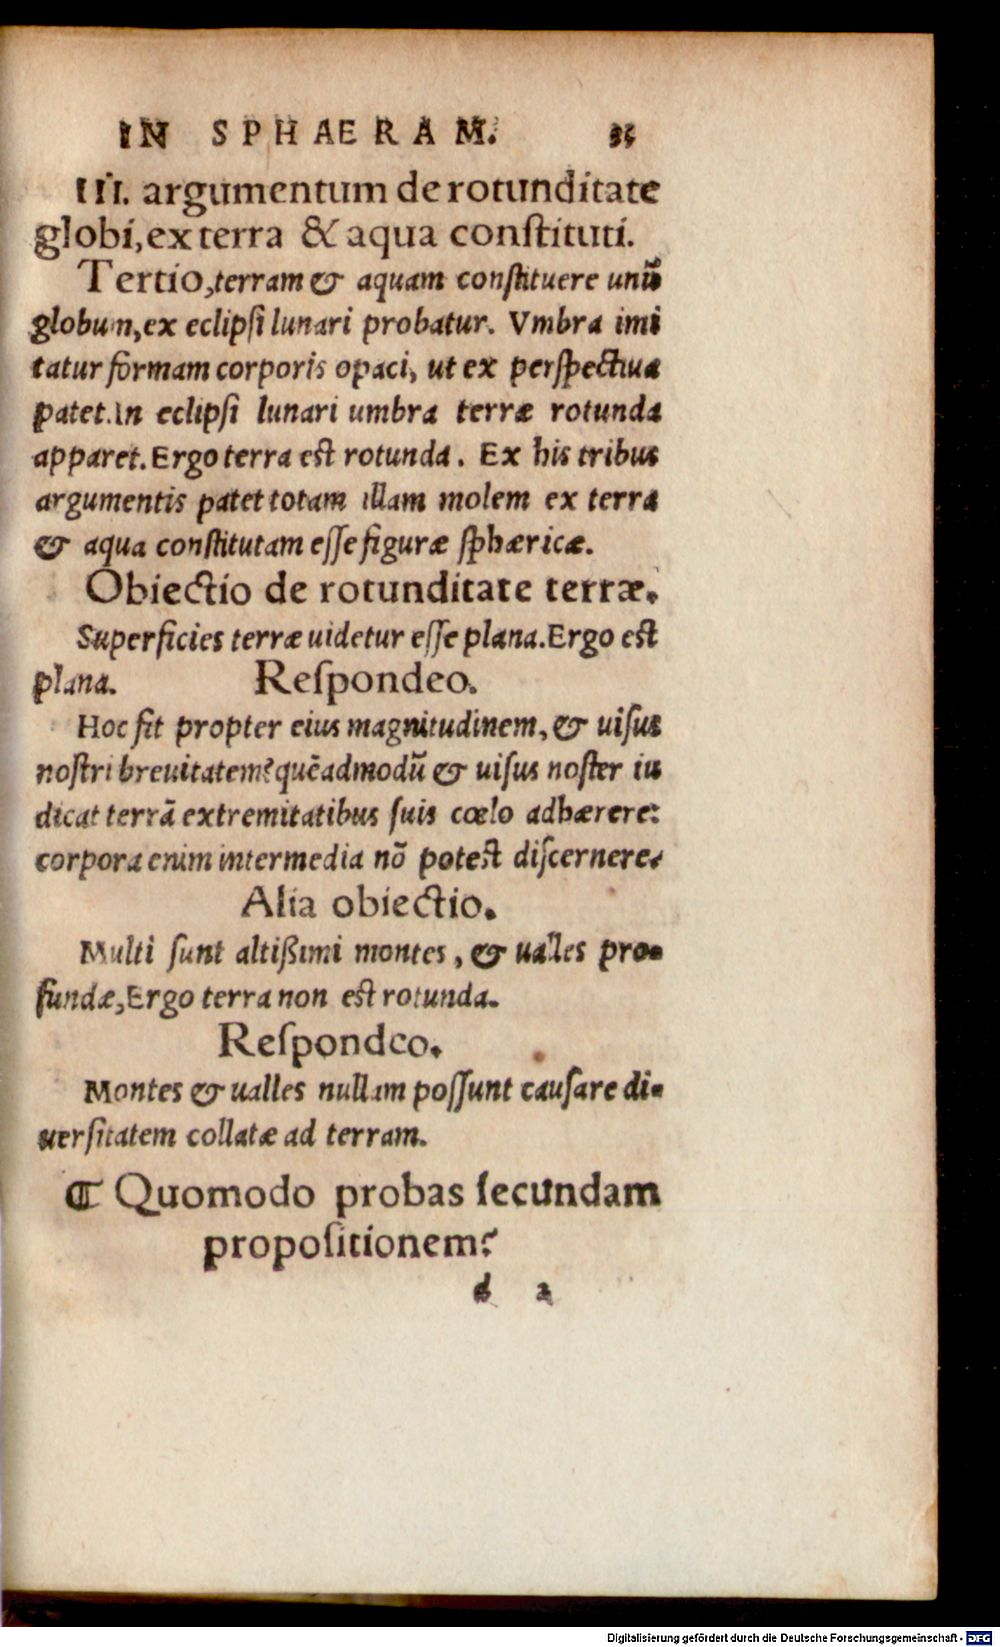 IN SPHAERAM.
III. argumentum de rotunditate
globi, ex terra & aqua conſtituti.
Tertio, terram & aquam conſtituere unũ
globum, ex eclipſi lunari probatur. Vmbra imi
tatur formam corporis opaci, ut ex perſpectiua
patet. In eclipſi lunari umbra terræ rotunda
apparet. Ergo terra eſt rotunda. Ex his tribus
argumentis patet totam illam molem ex terra
& aqua conſtitutam eſſe figuræ ſphæricæ.
Obiectio de rotunditate terræ.
Superficies terræ uidetur eſſe plana. Ergo eſt
plana. Reſpondeo.
Hoc fit propter eius magnitudinem, & uiſus
noſtri breuitatem? quẽadmodũ & uiſus noſter iu
dicat terrã extremitatibus ſuis cœlo adhærere:
corpora enim intermedia nõ poteſt diſcernere.
Alia obiectio.
Multi ſunt altißimi montes, & ualles pro-
fundæ, Ergo terra non eſt rotunda.
Reſpondeo.
Montes & ualles nullam poſſunt cauſare di-
uerſitatem collatæ ad terram.
¶ Quomodo probas ſecundam
propoſitionem?
d 2
Digitalisierung gefördert durch die Deutsche Forschungsgemeinschaft - DFG